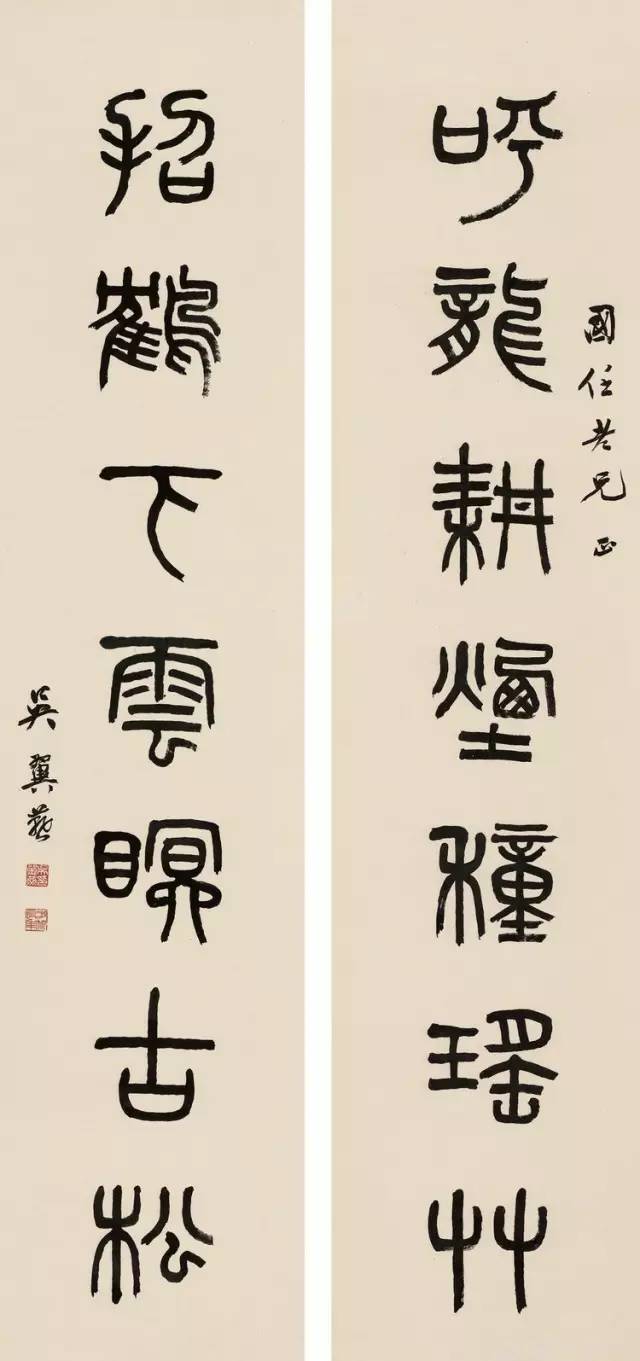 呼龍耕煙種瑤艸
國任老兄正
招鶴下雲瞑古松
吳翼燕